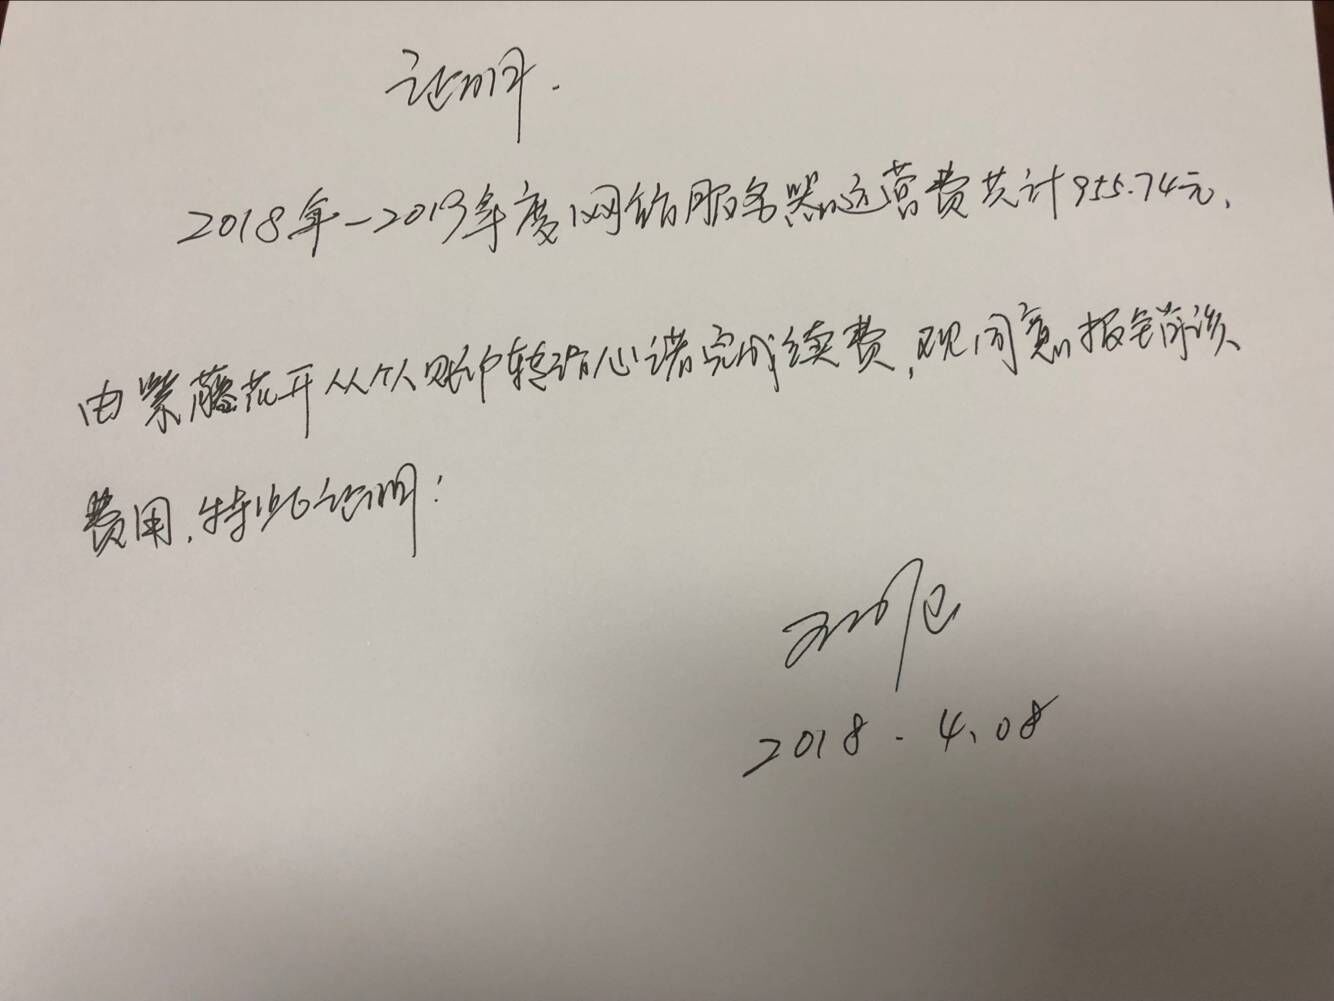 证明.
2018年-2019年度网络服务器运营费共计955.74元,
由紫藤花开从个人账户转给心诺完成续费,现同意报销该
费用,特此证明:
2018.4.08